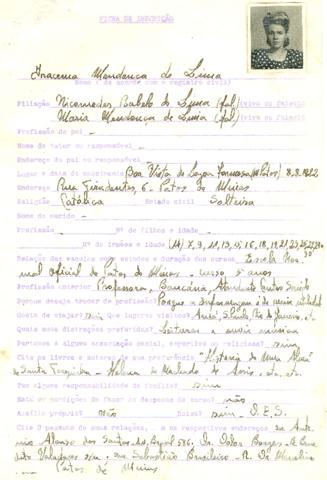 FICHA DE INSCRIÇÃO
Iracema Mendonça de Lima
Nome ( de acordo com o registro civil)
Filiação Nicomedes de Lima (fal) (viva ou falecida)
Maria Mendonça de Lima (fal) (viva ou falecida)
Profissão do pai -
Nome do tutor ou responsável -
Endereço do pai ou responsável
Lugar e data do nascimento Boa Vista de Lagoa Formosa (M. Patos) 8.8.1922
Endereço Rua Tiradentes, 6 - Patos de Minas
Religião Católica Estado civil Solteira
Nome do marido -
Profissão - Nº de filhos e idade -
Nº de irmãos e idade (14)
Relação das escolas que estudou e duração dos cursos Escola Nor-
mal Oficial de Patos de Minas - curso 5 anos
Profissão anterior Professora, Bancária,
Porque deseja trocar de profissão? Porque a Enfermagem é de mais utilidade
Gosta de viajar? sim Que lugares visitou? S. Paulo, Rio de Janeiro, etc.
Quais suas distrações preferidas? Leituras e ouvir música
Pertence a alguma associação social, esportiva ou religiosa? sim
Cite os livros e autores de sua preferência "História de Uma Alma"
de Santa Terezinha - Helena de Machado de Assis, etc. etc.
Tem alguma responsabilidade de família? sim
Está em condições de fazer as despesas do curso? não
Auxílio próprio? não Bolsa? sim - S.E.S.
Cite 3 pessoas de suas relações, e os respectivos endereços sr. Antô-
nio Alonso dos Santos - Av. Brasil 586, Dr. Borges - R.
s/n, sr. Sebastião Brasileiro - R. Dr. Marcolino
- Patos de Minas